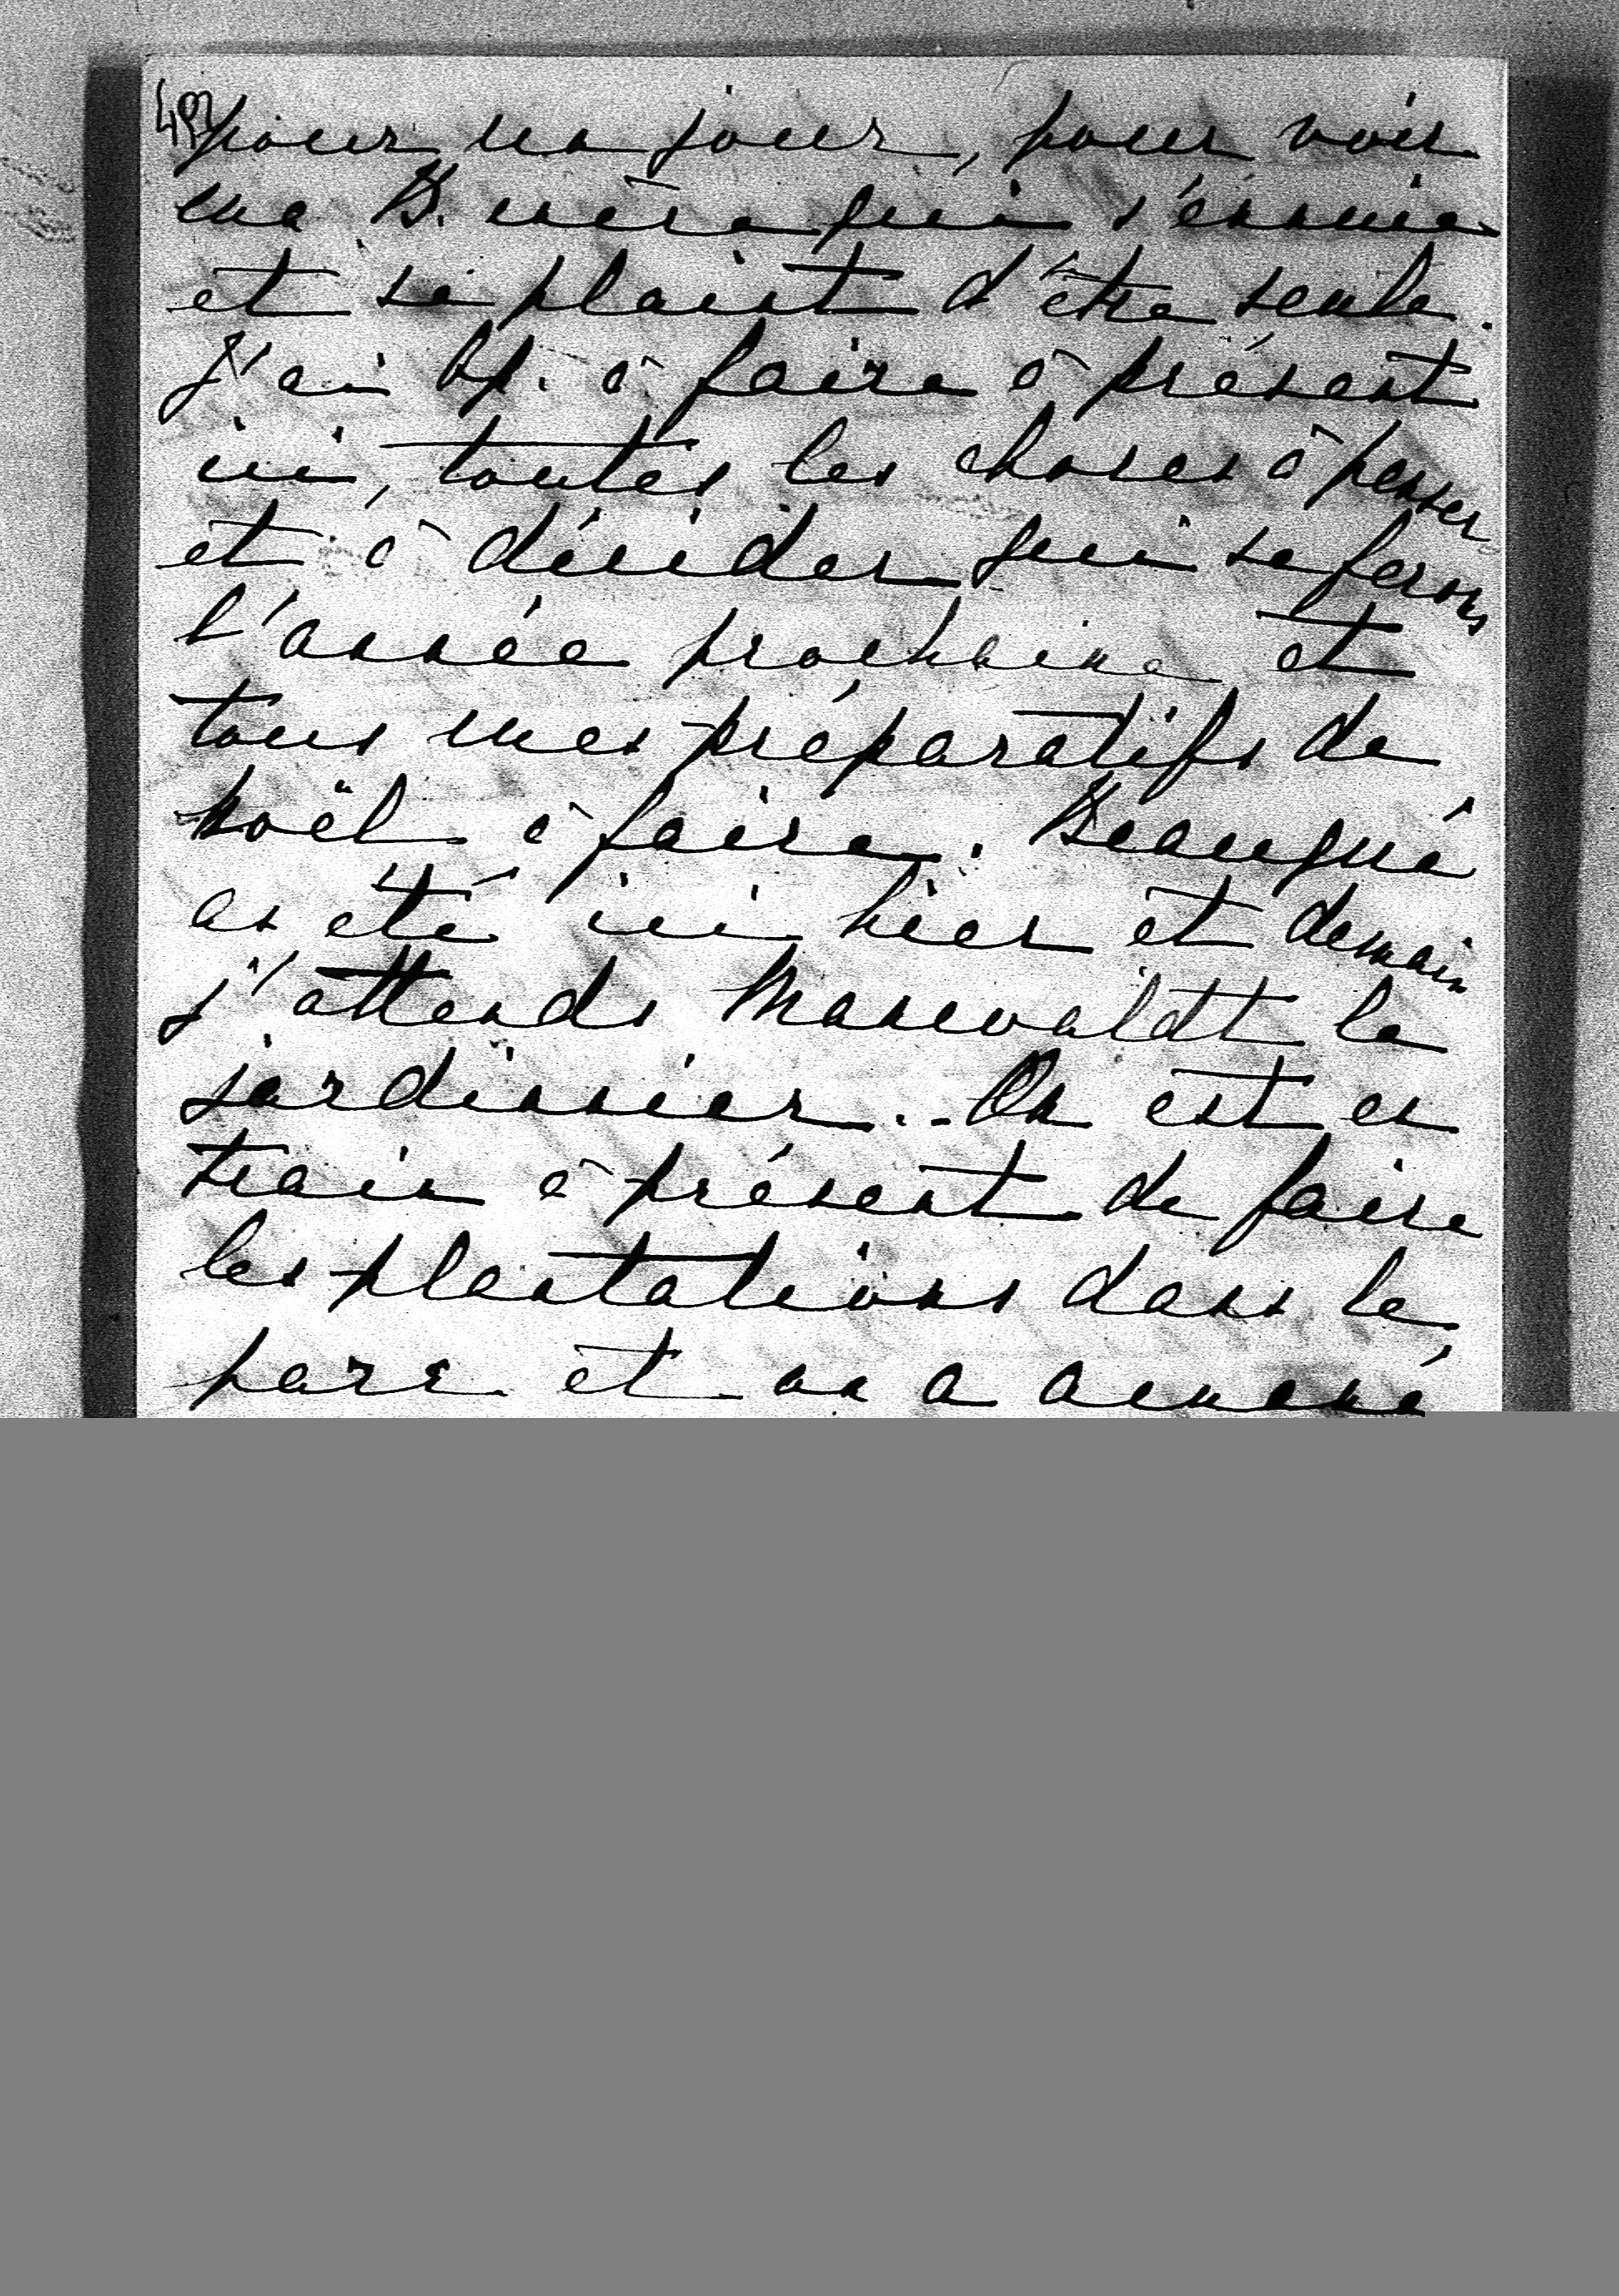 pour un jour, pour voir
ma B. mère qui s'ennuie
et se plaint d'être seule.
J'ai bp. à faire à présent
ici, toutes les choses à penser
et à décider qui se ferons
l'année prochaine et
tous mes préparatifs de
noël à faire. Beauqué
as été ici hier et demain
j'attends Marewaldt le
jardinnier... On est en
train à présent de faire
les plantations dans le
parc et on a amené